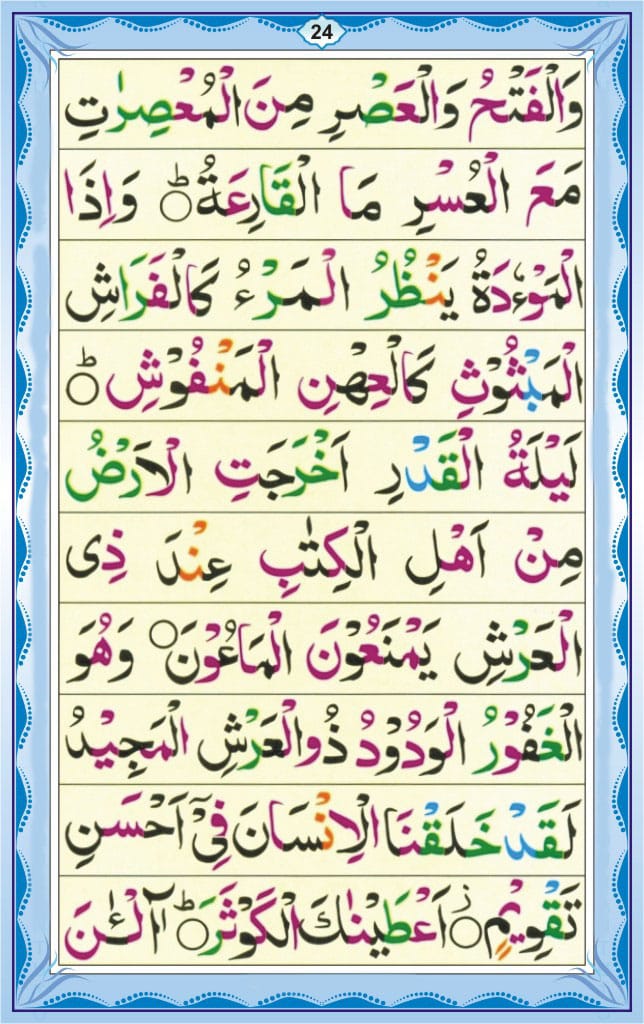 24
وَالْفَتْحُ وَالْعَصْرِ مِنَ الْمُعْصِرٰتِ
مَعَ الْعُسْرِ مَا الْقَارِعَةُ ۝ؕ وَاِذَا
الْمَوْءٗدَةُ يَنْظُرُ الْمَرْءُ كَالْفَرَاشِ
الْمَبْثُوْثِ كَالْعِهْنِ الْمَنْفُوْشِ ۝ؕ
لَيْلَةُ الْقَدْرِ اَخْرَجَتِ الْاَرْضُ
مِنْ اَهْلِ الْكِتٰبِ عِنْدَ ذِى
الْعَرْشِ يَمْنَعُوْنَ الْمَاعُوْنَ ۝ وَهُوَ
الْغَفُوْرُ الْوَدُوْدُ ذُوالْعَرْشِ الْمَجِيْدُ
لَقَدْ خَلَقْنَا الْاِنْسَانَ فِیْۤ اَحْسَنِ
تَقْوِيْمٍ ۝ز اَعْطَيْنٰكَ الْكَوْثَرَ ۝ؕ آلْـٰٔنَ